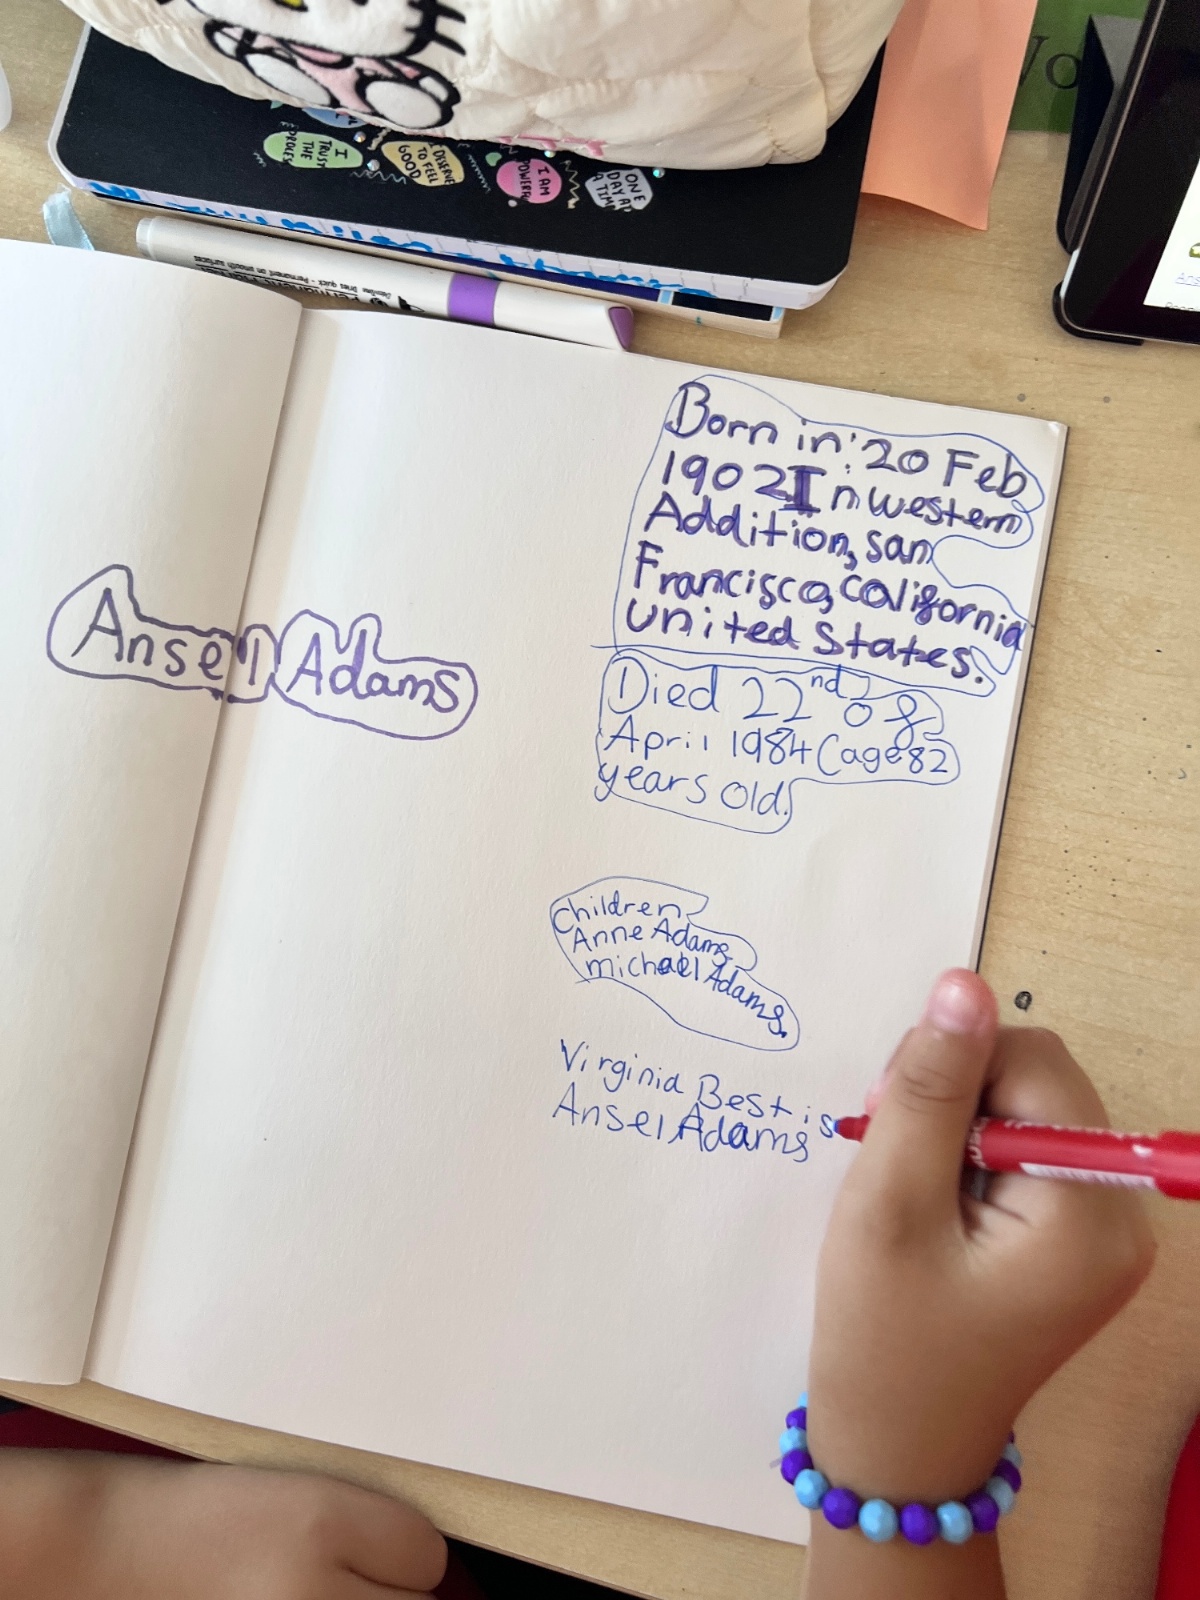 I TRUST THE PROCESS
I DESERVE TO FEEL GOOD
I AM POWERFUL
ONE DAY AT A TIME
Dries quick - Permanent on smooth surfaces
Ansel Adams
Born in: 20 Feb
1902 In western
Addition, san
Francisco, California
United States.
Died 22nd of
April 1984 (age 82
years old.
Children
Anne Adams
michael Adams.
Virginia Best is
Ansel Adams